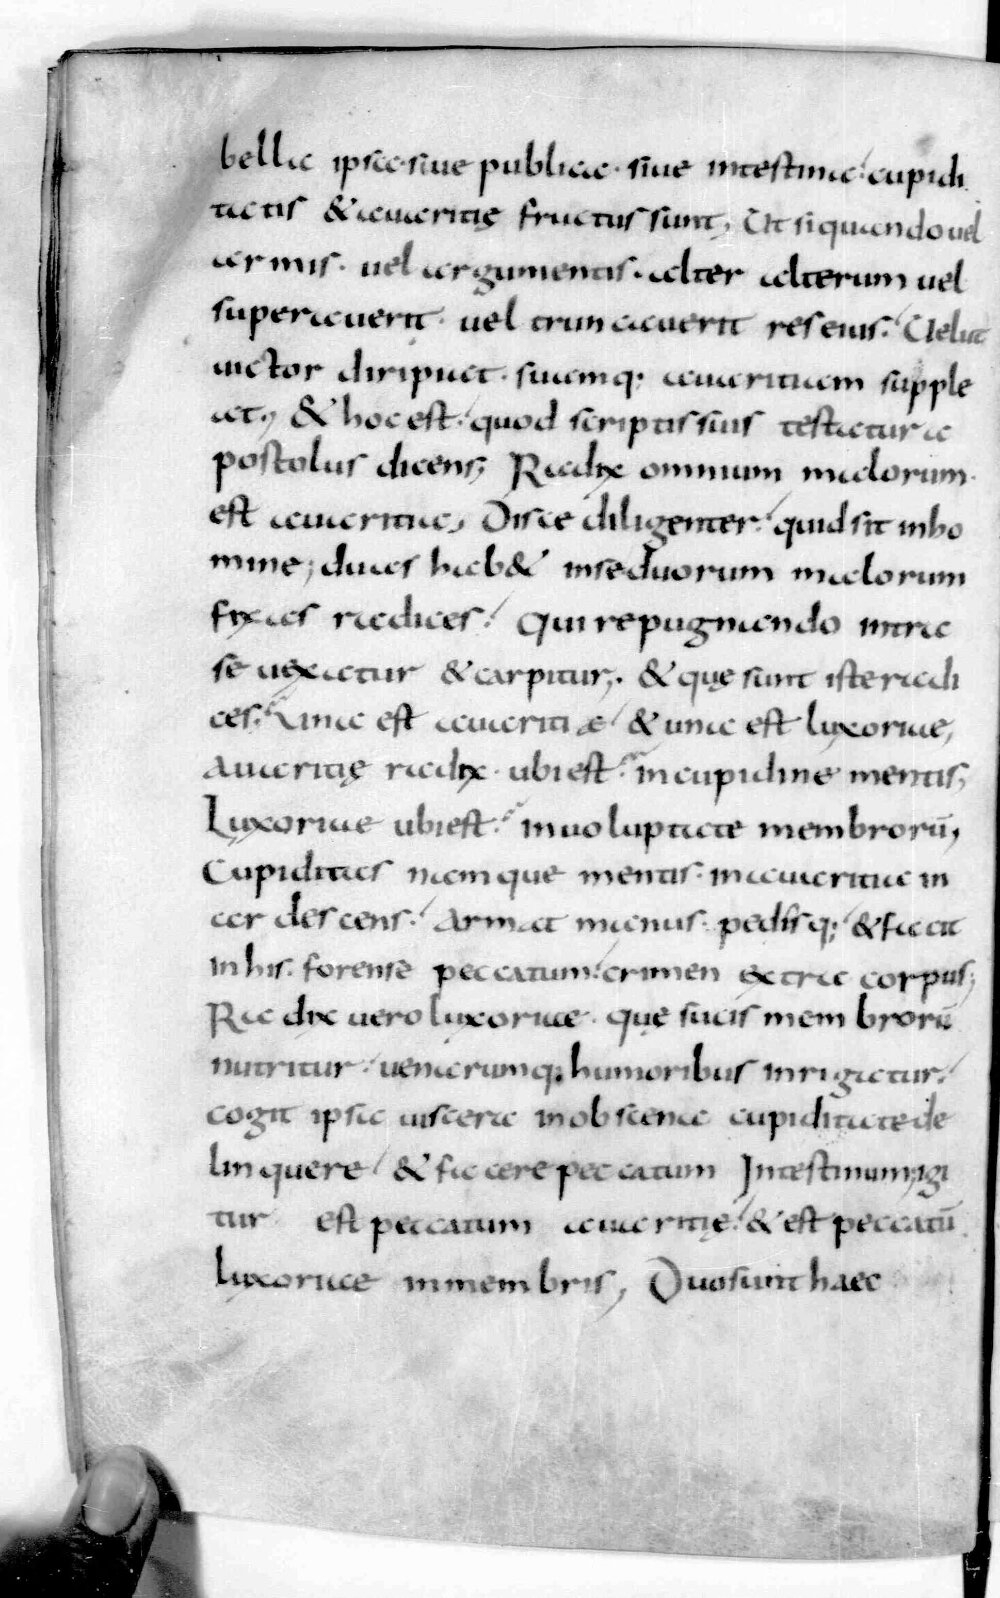 bella ipsa· siue publica· siue intestina: cupidi
tatis & auaritię fructus sunt; Ut si quando uel
armis· uel argumentis· alter alterum uel
superauerit· uel truncauerit res eius: Uelut
uictor diripuet· suamq; auaritiam supple
at; & hoc est· quod scriptis suis testatur a
postolus dicens; Radix omnium malorum·
est auaritia; Disce diligenter: quid sit in ho
mine; duas hab& in se duorum malorum
fixas radices: qui repugnando intra
se uexatur & carpitur;· & quę sunt iste radi
ces: Una est auaritiæ & una est luxoriae;
Auaritię radix· ubi est: in cupidine mentis;
Luxoriae ubi est: in uoluptate membrorū;
Cupiditas namque mentis· in auaritia in
ardescens: Armat manus· pedisq; & facit
in his· forense peccatum: crimen extra corpus;
Radix uero luxoriae· quę sucis membrorū
nutritur: uenarumq; humoribus inrigatur:
cogit ipsa uiscera in obscena cupiditate de
linquere & facere peccatum Intestinum; igi
tur est peccatum auaritię: & est peccatū
luxoriae in membris; Duo sunt haec